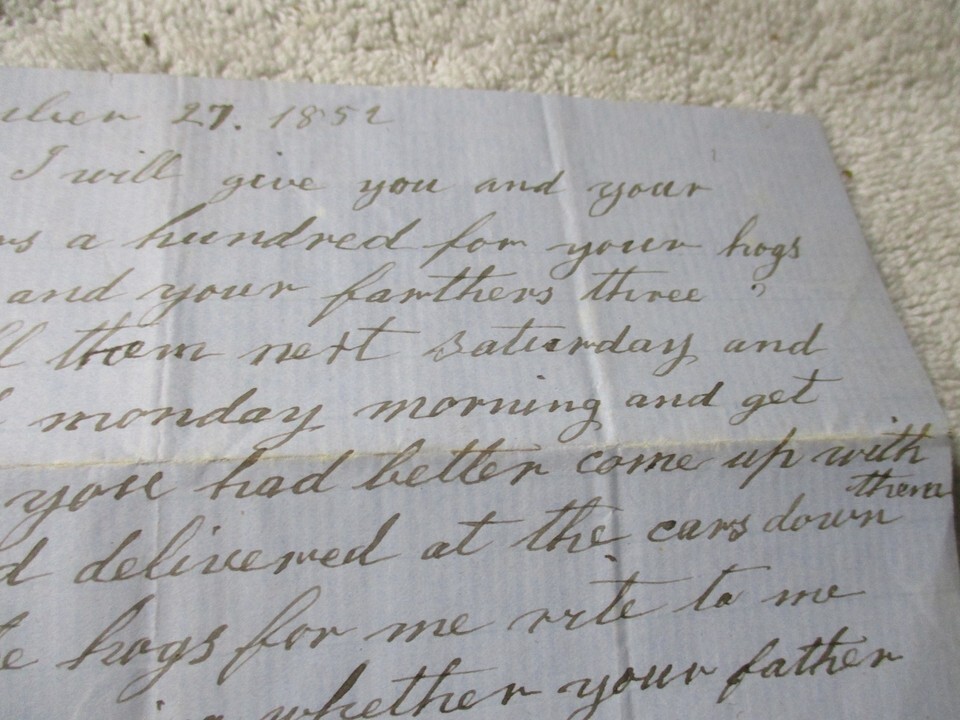 27. 1852
I will give you and your
a hundred for your hogs
and your farthers three
them next saturday and
monday morning and get
you had better come up with
them
delivered at the cars down
hogs for me rite to me
whether your father